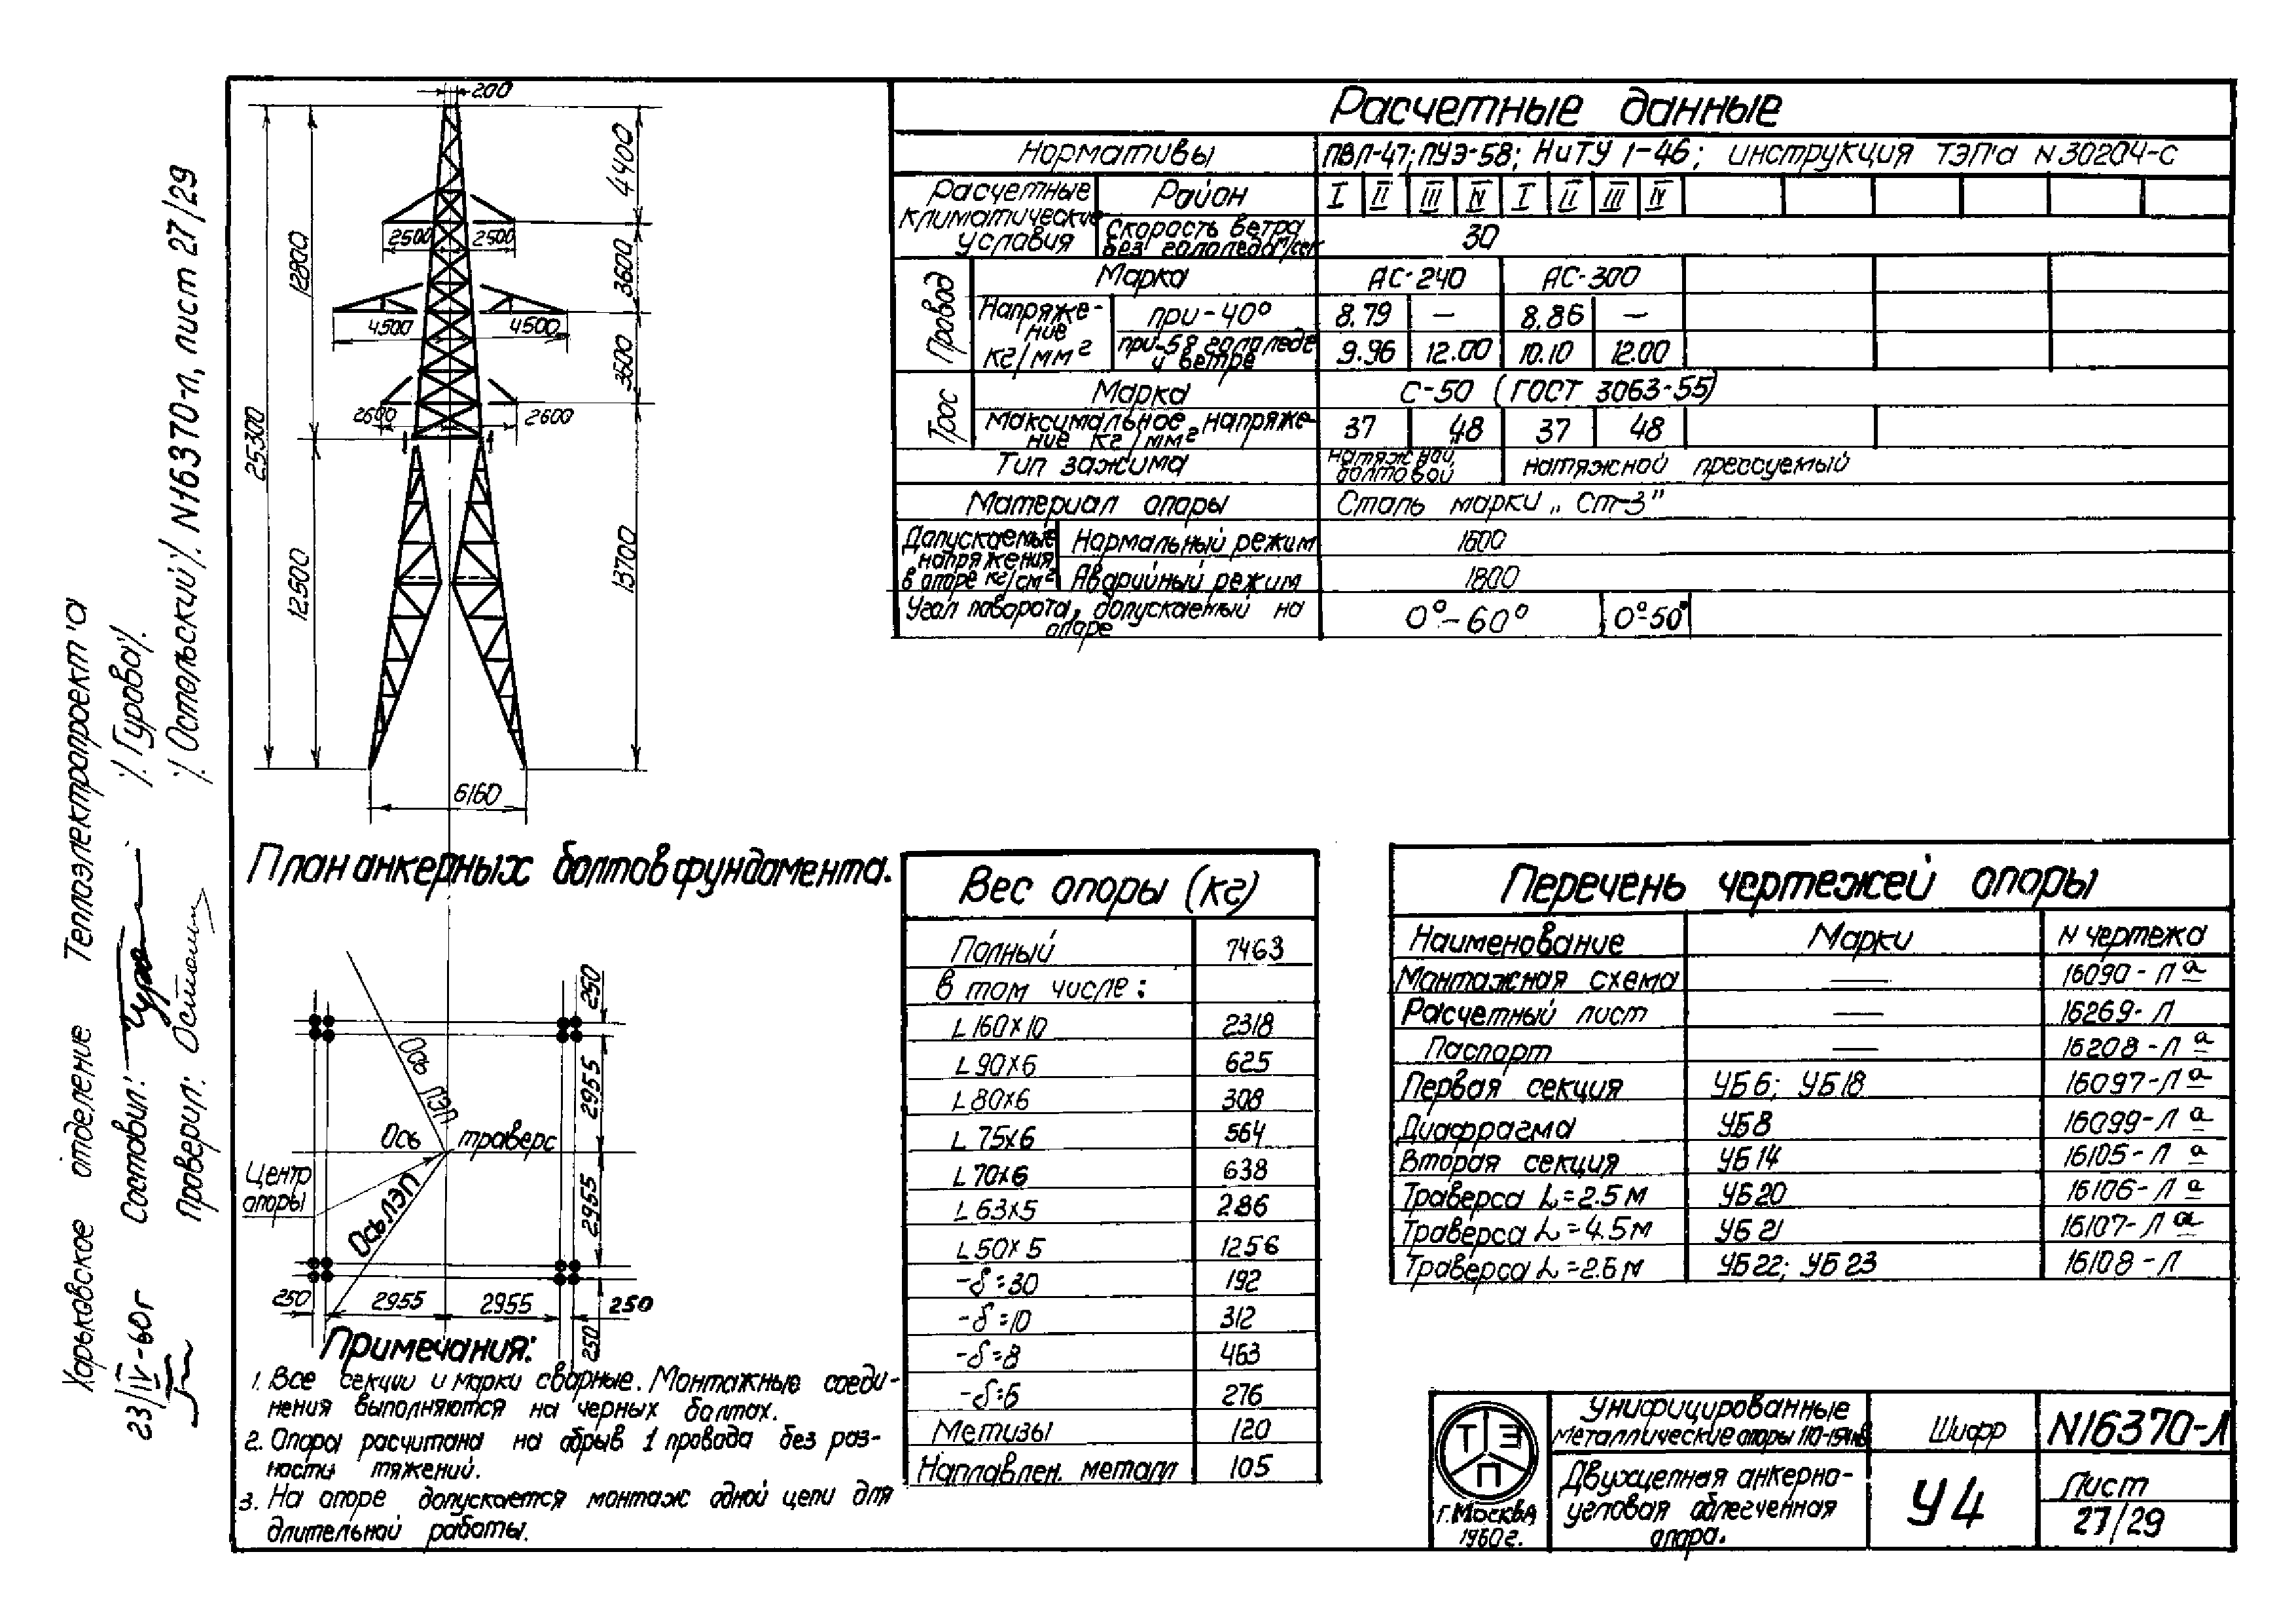 Харьковское отделение Теплоэлектропроект'а
23/IV-60г Составил: /Гурова/.
Проверил: /Остольский/. N16370-л, лист 27/29
200
4400
2500 2500
12800
3600
4500 4500
3600
2600 2600
25300
12500
13700
6160
Расчетные данные
Нормативы ПВЛ-47; ПУЭ-58; НиТУ 1-46; инструкция ТЭП'а N30204-с
Расчетные климатические условия
Район I II III IV I II III IV
Скорость ветра без гололеда м/сек 30
Провод
Марка АС-240 АС-300
Напряжение кг/мм²
при -40° 8.79 — 8.86 —
при -5° гололеде и ветре 9.96 12.00 10.10 12.00
Трос
Марка С-50 (ГОСТ 3063-55)
Максимальное напряжение кг/мм² 37 48 37 48
Тип зажима натяжной болтовой натяжной прессуемый
Материал опоры Сталь марки „Ст-3"
Допускаемые напряжения в опоре кг/см²
Нормальный режим 1600
Аварийный режим 1800
Угол поворота, допускаемый на опоре 0°-60° 0°-50°
План анкерных болтов фундамента.
250
Ось ЛЭП
2955
Ось траверс
Центр опоры
Ось ЛЭП
2955
250 2955 2955 250
250
Примечания:
1. Все секции и марки сварные. Монтажные соеди-
нения выполняются на черных болтах.
2. Опора расчитана на обрыв 1 провода без раз-
ности тяжений.
3. На опоре допускается монтаж одной цепи для
длительной работы.
Вес опоры (кг)
Полный 7463
в том числе:
L160x10 2318
L90x6 625
L80x6 308
L75x6 564
L70x6 638
L63x5 286
L50x5 1256
-δ=30 192
-δ=10 312
-δ=8 463
-δ=6 276
Метизы 120
Наплавлен. металл 105
Перечень чертежей опоры
Наименование Марки N чертежа
Монтажная схема — 16090-Л а
Расчетный лист — 16269-Л
Паспорт — 16208-Л а
Первая секция УБ6; УБ18 16097-Л а
Диафрагма УБ8 16099-Л а
Вторая секция УБ14 16105-Л а
Траверса L=2.5м УБ20 16106-Л а
Траверса L=4.5м УБ21 16107-Л а
Траверса L=2.6м УБ22; УБ23 16108-Л
ТЭП
г. Москва
1960г.
Унифицированные
металлические опоры 110-154кв
Двухцепная анкерно-
угловая облегченная
опора.
Шифр
У4
N16370-Л
Лист
27/29